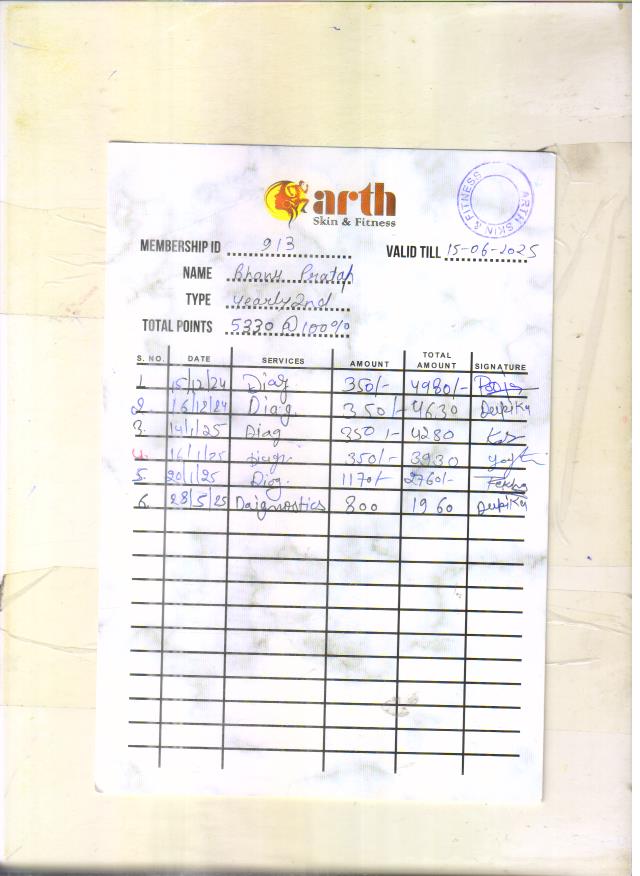 arth
Skin & Fitness
ARTH SKIN & FITNESS
MEMBERSHIP ID 913 VALID TILL 15-06-2025
NAME Bhanu Pratap
TYPE yearly 2nd
TOTAL POINTS 5330 @ 100%
S. NO. DATE SERVICES AMOUNT TOTAL AMOUNT SIGNATURE
1. 15/12/24 Diag 350/- 4980/-
2. 16/12/24 Diag 350/- 4630 Deepika
3. 14/1/25 Diag 350/- 4280
4. 16/1/25 Diagn 350/- 3930
5. 20/1/25 Diag. 1170/- 2760/-
6. 28/5/25 Daignostics 800 1960 Deepika